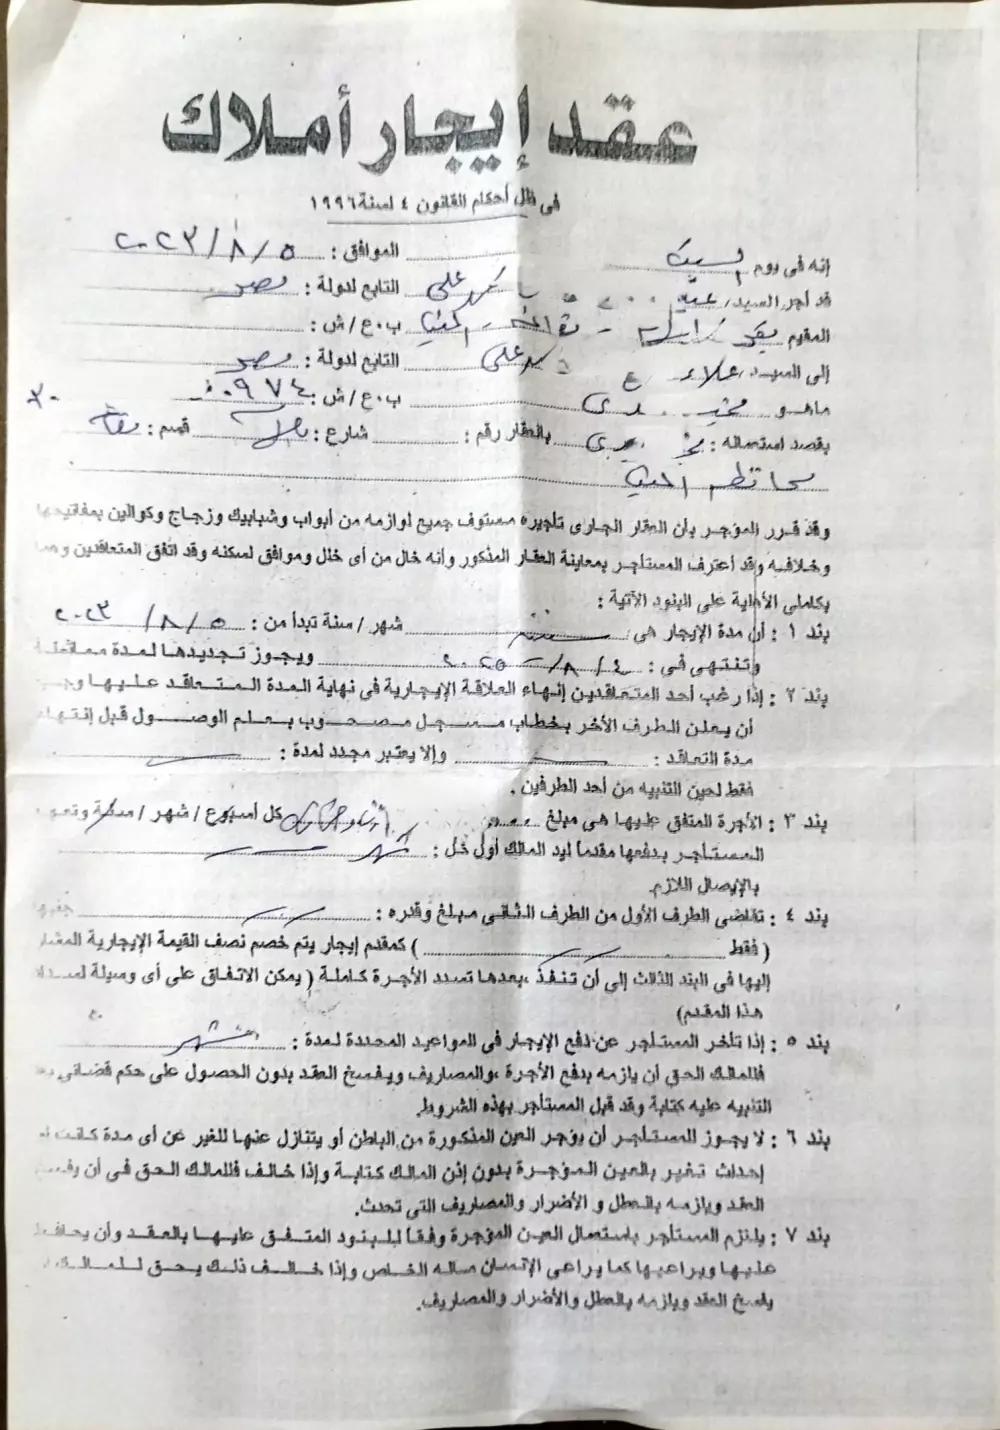 عقد إيجار أملاك
فى ظل أحكام القانون ٤ لسنة ١٩٩٦
إنه فى يوم السبت الموافق : ٥ / ٨ / ٢٠٢٣
قد أجر السيد / على التابع لدولة : مصر
المقيم ب.ع / ش :
إلى السيد / علاء على التابع لدولة : مصر
ما هو ب.ع / ش : ٠٩٧٤
بقصد استعماله : بالعقار رقم : شارع : قسم :
محافظة المنيا
وقد قرر المؤجر بأن العقار الجارى تأجيره مستوف جميع لوازمه من أبواب وشبابيك وزجاج وكوالين بمفاتيحها
وخلافه وقد أعترف المستأجر بمعاينة العقار المذكور وأنه خال من أى خلل وموافق لسكنه وقد اتفق المتعاقدين وهما
بكاملى الأهلية على البنود الآتية :
بند ١ : أن مدة الإيجار هى : شهر / سنة تبدأ من : ٥ / ٨ / ٢٠٢٣
وتنتهى فى : ٤ / ٨ / ٢٠٢٥ ويجوز تجديدها لمدة مماثلة
بند ٢ : إذا رغب أحد المتعاقدين إنهاء العلاقة الإيجارية فى نهاية المدة المتعاقد عليها وجب
أن يعلن الطرف الأخر بخطاب مسجل مصحوب بعلم الوصول قبل إنتهاء
مدة التعاقد : وإلا يعتبر مجدد لمدة :
فقط لحين التنبيه من أحد الطرفين .
بند ٣ : الأجرة المتفق عليها هى مبلغ كل أسبوع / شهر / سنة
المستأجر بدفعها مقدما ليد المالك أول كل : شهر
بالإيصال اللازم.
بند ٤ : تقاضى الطرف الأول من الطرف الثانى مبلغ وقدره : جنيها
( فقط ) كمقدم إيجار يتم خصم نصف القيمة الإيجارية المشار
إليها فى البند الثالث إلى أن تنفذ ،بعدها تسدد الأجرة كاملة ( يمكن الاتفاق على أى وسيلة لسداد
هذا المقدم)
بند ٥ : إذا تأخر المستأجر عن دفع الإيجار فى المواعيد المحددة لمدة : شهر
فللمالك الحق أن يلزمه بدفع الأجرة ،والمصاريف ويفسخ العقد بدون الحصول على حكم قضائى
التنبيه عليه كتابة وقد قبل المستأجر بهذه الشروط.
بند ٦ : لا يجوز للمستأجر أن يؤجر العين المذكورة من الباطن أو يتنازل عنها للغير عن أى مدة كانت
إحداث تغير بالعين المؤجرة بدون إذن المالك كتابة وإذا خالف فللمالك الحق فى أن يفسخ
العقد ويلزمه بالعطل و الأضرار والمصاريف التى تحدث.
بند ٧ : يلتزم المستأجر باستعمال العين المؤجرة وفقا للبنود المتفق عليها بالعقد وأن يحافظ
عليها ويراعيها كما يراعى الإنسان ماله الخاص وإذا خالف ذلك يحق للمالك
يفسخ العقد ويلزمه بالعطل والأضرار والمصاريف.